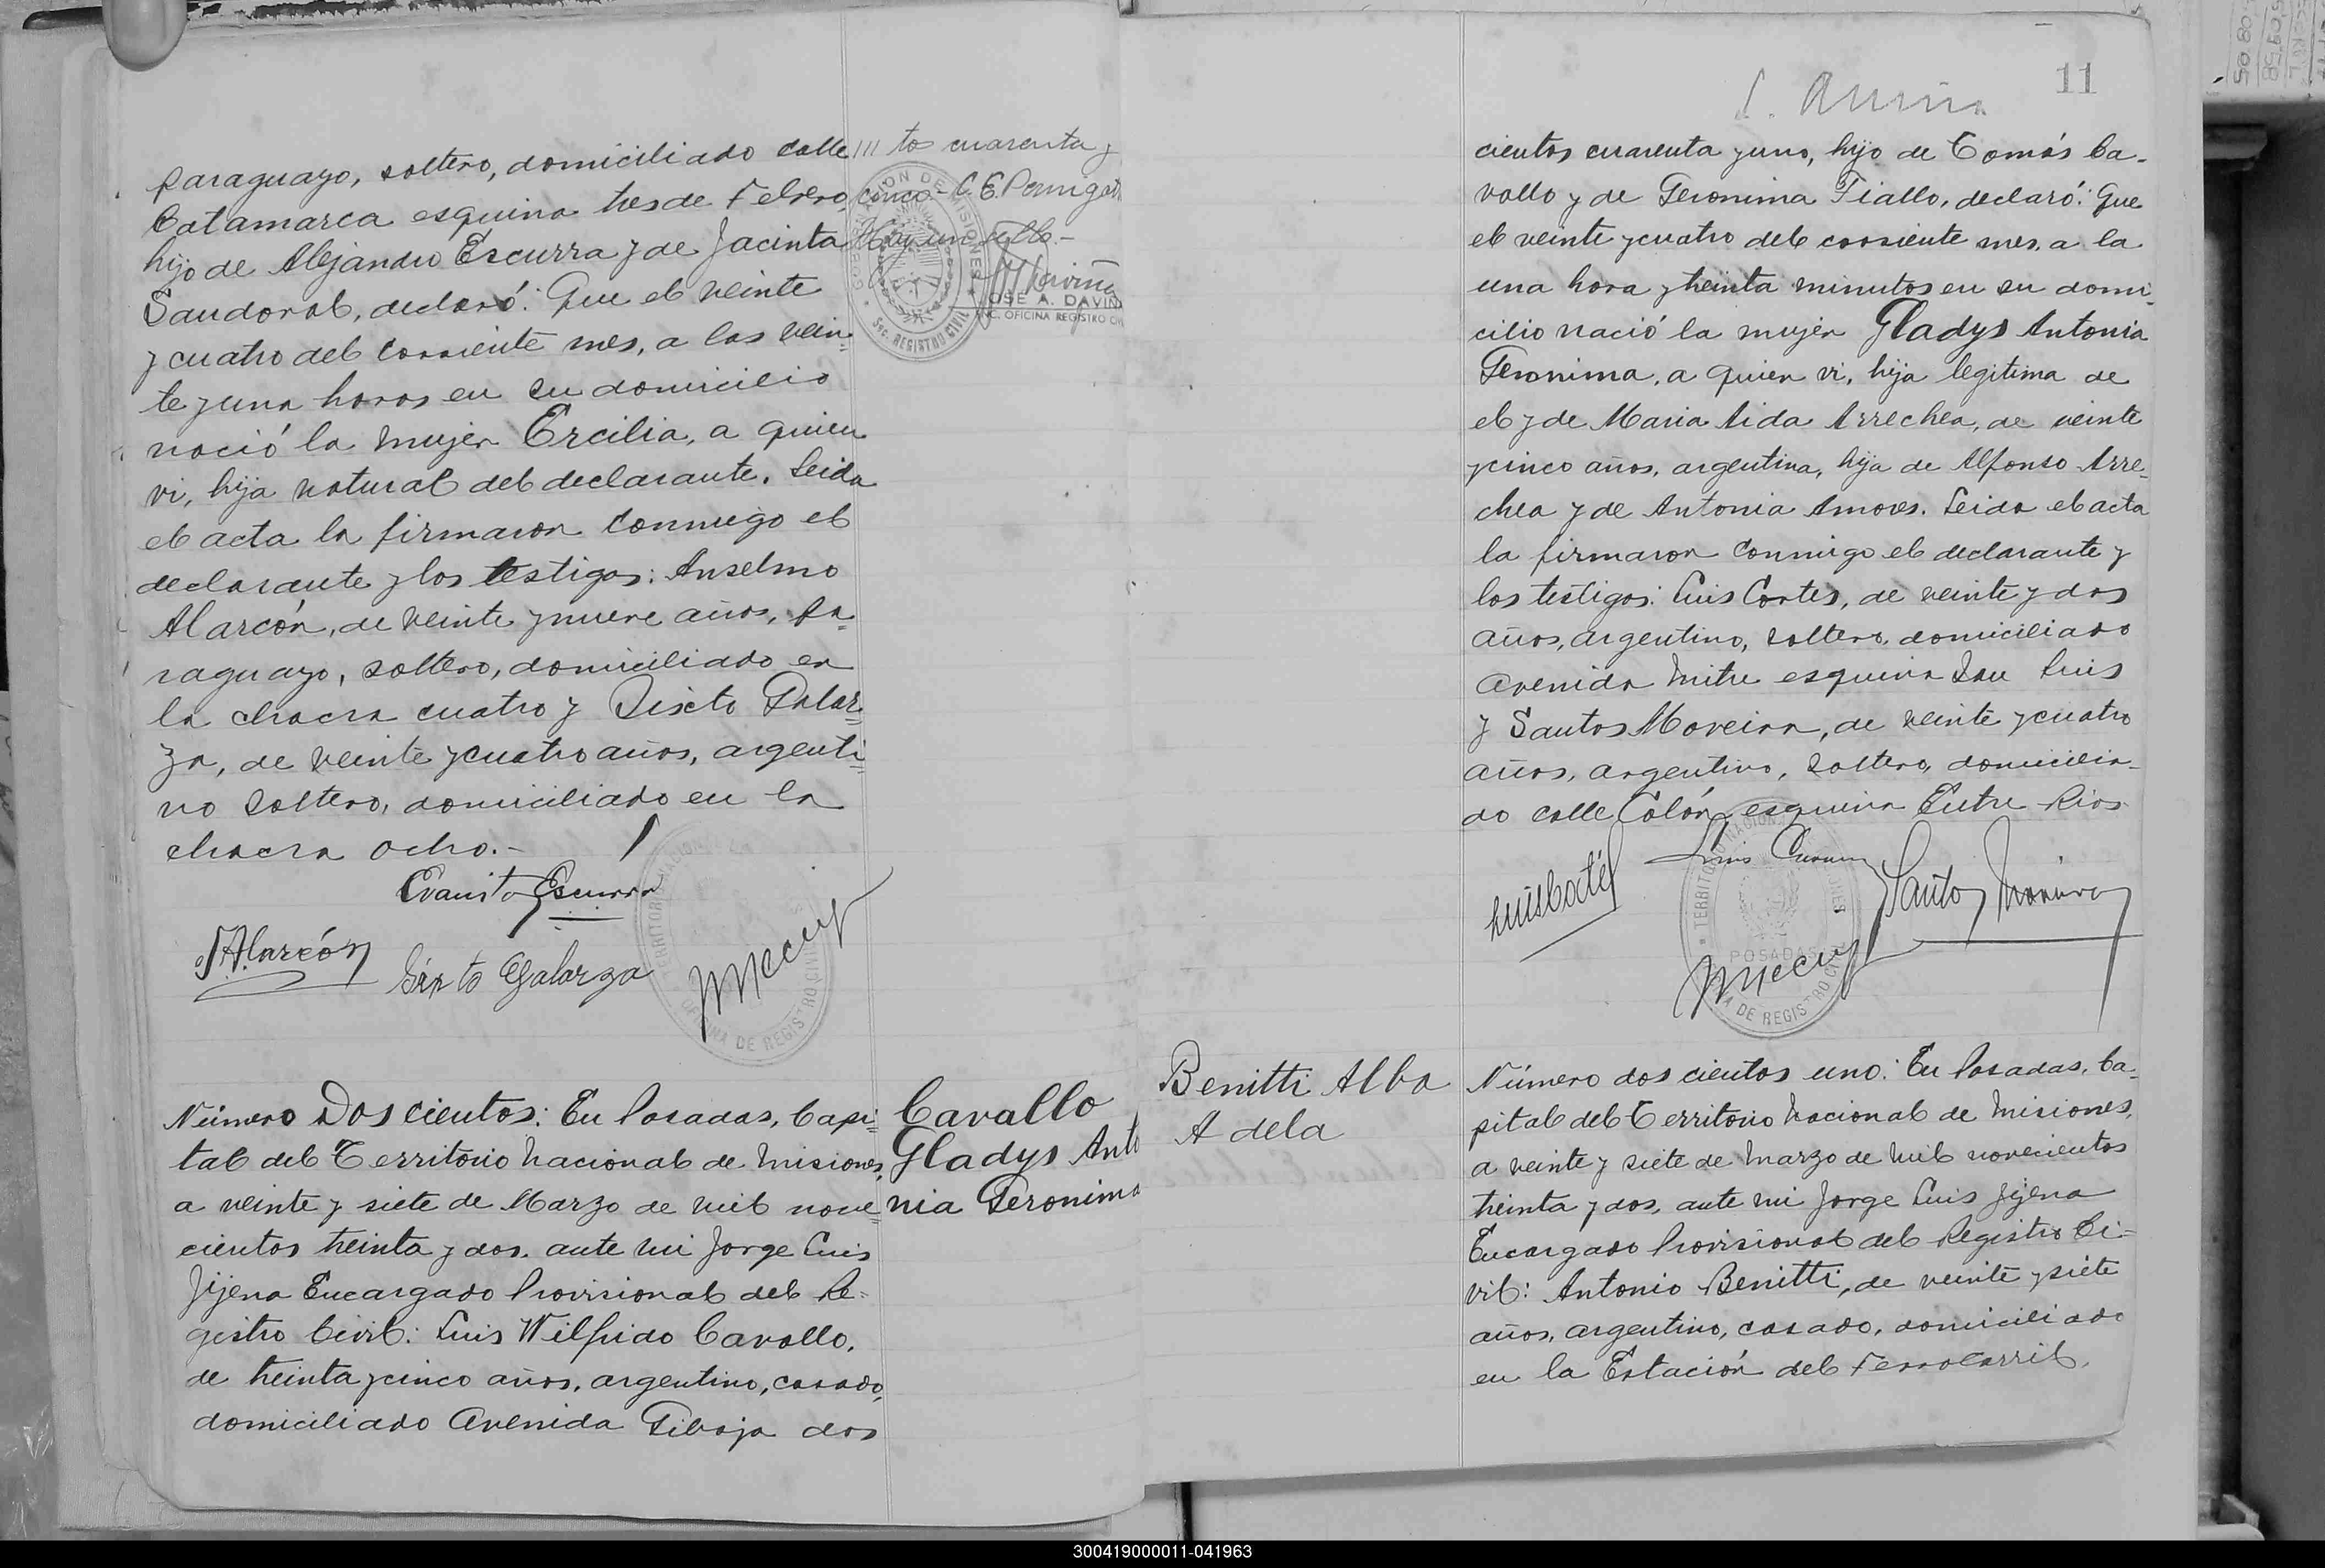 paraguayo, soltero, domiciliado calle
Catamarca esquina tres de Febrero,
hijo de Alejandro Escurra y de Jacinta
Sandoval, declaró: Que el veinte
y cuatro del corriente mes, a las vein=
te y una horas en su domicilio
nació la mujer Ercilia, a quien
vi, hija natural del declarante. Leida
el acta la firmaron conmigo el
declarante y los testigos: Anselmo
Alarcón, de veinte y nueve años, pa=
raguayo, soltero, domiciliado en
la chacra cuatro y Sixto Galar=
za, de veinte y cuatro años, argenti=
no soltero, domiciliado en la
chacra ocho.-
Evaristo Escurra
A. Alarcón
Sixto Galarza
OFICINA DE REGISTRO CIVIL
tos cuarenta y
cinco.- C. E.
Hay un sello.-
JOSE A. DAVIÑA
ENC. OFICINA REGISTRO CIVIL
Sec. REGISTRO CIVIL
Número Doscientos: En Posadas, Capi=
tal del Territorio Nacional de Misiones,
a veinte y siete de Marzo de mil nove=
cientos treinta y dos, ante mi Jorge Luis
Jijena Encargado Provisional del Re=
gistro Civil: Luis Wilfrido Cavallo,
de treinta y cinco años, argentino, casado,
domiciliado Avenida Giboja dos
Cavallo
Gladys Anto
nia Geronima
11
cientos cuarenta y uno, hijo de Tomás Ca-
vallo y de Geronima Fiallo, declaró: Que
el veinte y cuatro del corriente mes, a la
una hora y treinta minutos en su domi=
cilio nació la mujer Gladys Antonia
Geronima, a quien vi, hija legitima de
el y de Maria Aida Arrechea, de veinte
y cinco años, argentina, hija de Alfonso Arre=
chea y de Antonia Amores. Leida el acta
la firmaron conmigo el declarante y
los testigos: Luis Cortes, de veinte y dos
años, argentino, soltero, domiciliado
Avenida Mitre esquina San Luis
y Santos Moreira, de veinte y cuatro
años, argentino, soltero, domicilia-
do calle Colón esquina Entre Rios
Luis Cortés
Santos Moreira
POSADAS
Benitti Alba
Adela
Número doscientos uno: En Posadas, Ca=
pital del Territorio Nacional de Misiones,
a veinte y siete de Marzo de mil novecientos
treinta y dos, ante mi Jorge Luis Jijena
Encargado Provisional del Registro Ci=
vil: Antonio Benitti, de veinte y siete
años, argentino, casado, domiciliado
en la Estación del Ferrocarril,
300419000011-041963